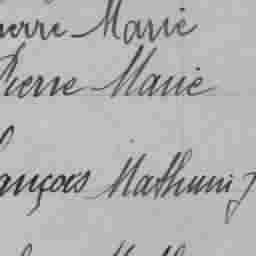 Pierre Marie
Pierre Marie
François Mathurin J